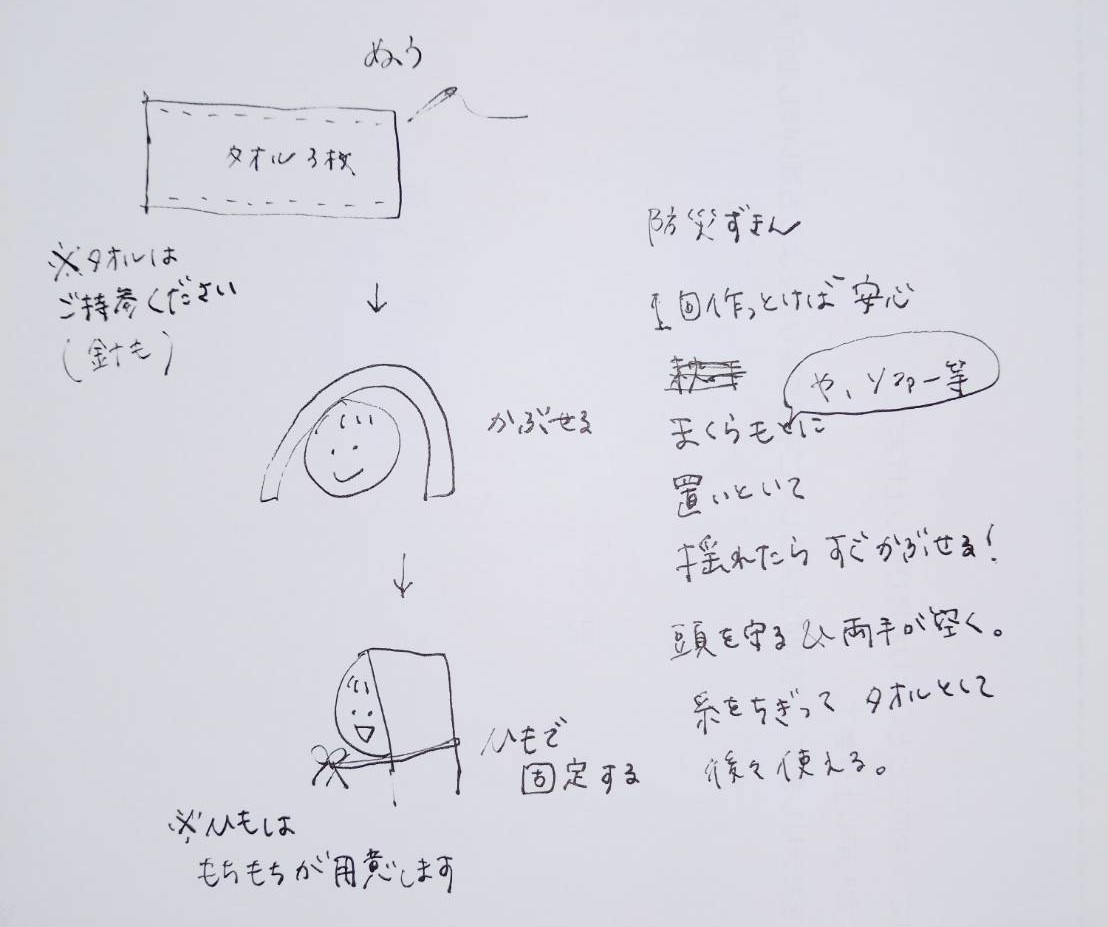 ぬう
タオル3枚
※タオルは
ご持参ください
(針も)
かぶせる
ひもで
固定する
※ひもは
もちもちが用意します
防災ずきん
1回作っとけば安心
や、ソファー等
まくらもとに
置いといて
揺れたらすぐかぶせる!
頭を守る&両手が空く。
糸をちぎってタオルとして
後々使える。